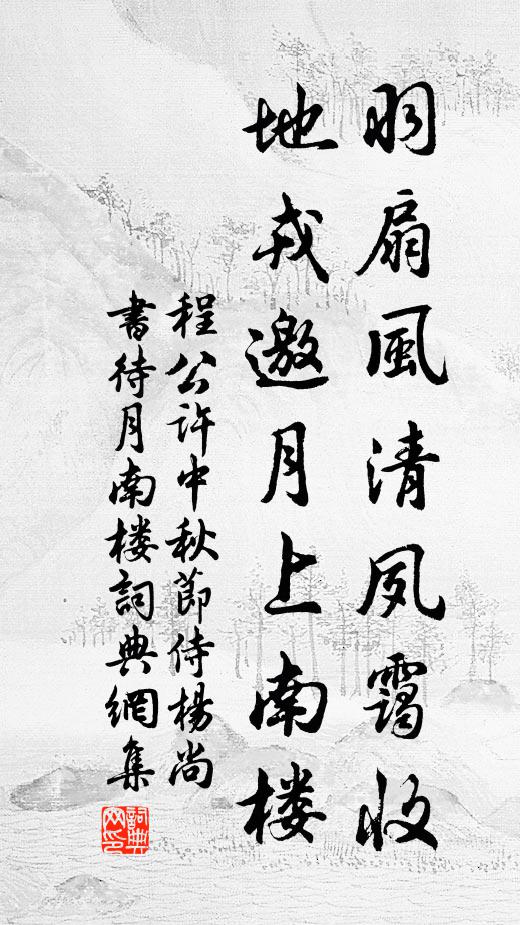 羽扇風清夙靄收
地戎邀月上南楼
程公许中秋節侍楊尚
書待月南楼詞典網集
詞典
网印